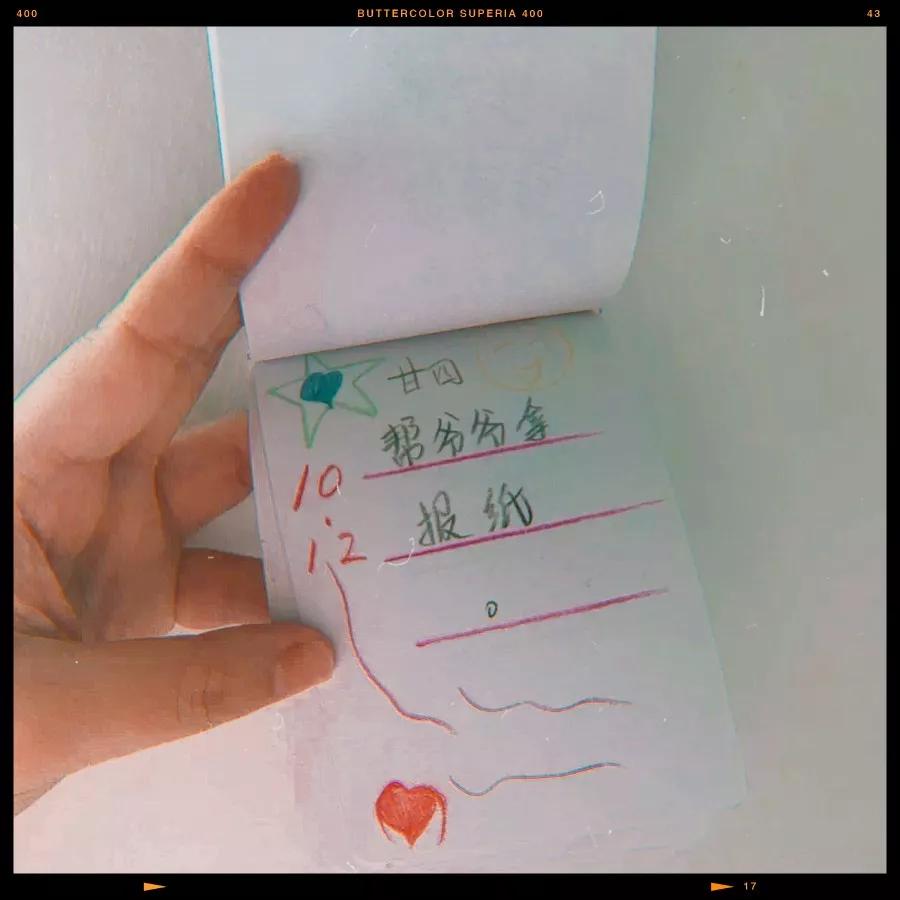 400 BUTTERCOLOR SUPERIA 400 43
廿四
帮爷爷拿
10.12
报纸
。
17